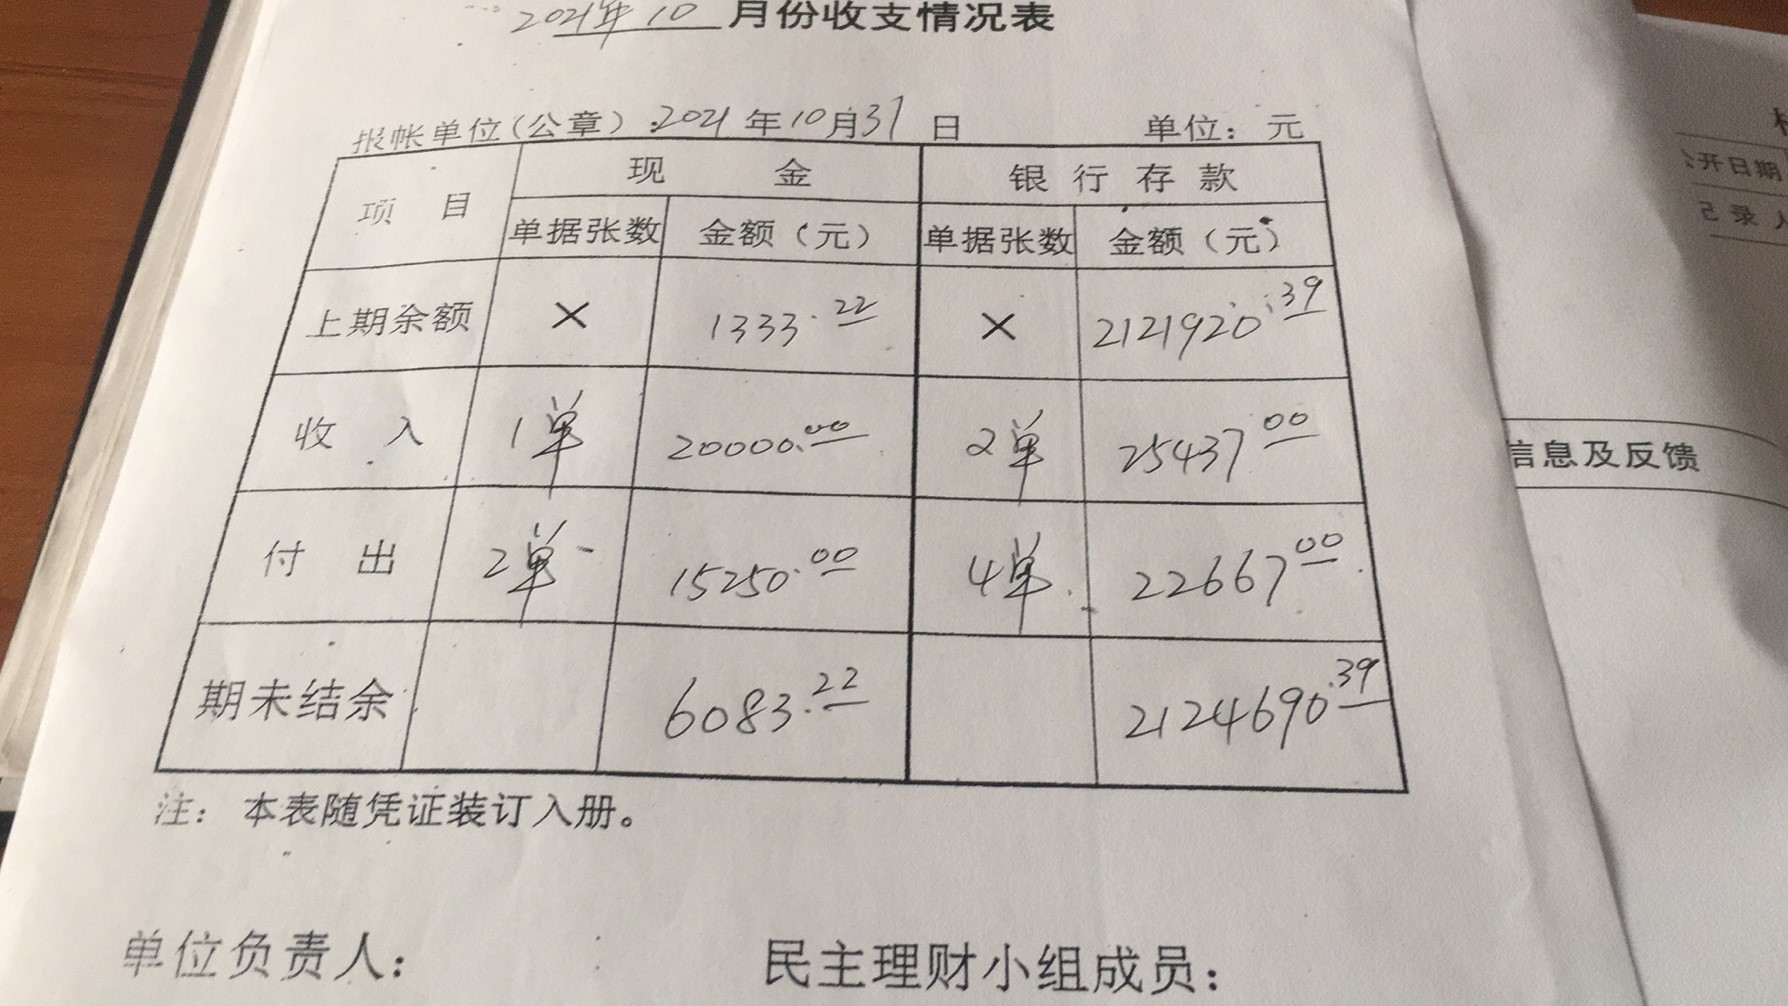 2021年10月份收支情况表
报帐单位(公章):2021年10月31日 单位:元
项目 现金 银行存款
单据张数 金额(元) 单据张数 金额(元)
上期余额 × 1333.22 × 2121920.39
收入 1单 20000.00 2单 25437.00
付出 2单 15250.00 4单 22667.00
期未结余 6083.22 2124690.39
注:本表随凭证装订入册。
单位负责人: 民主理财小组成员:
开日期
记录
信息及反馈